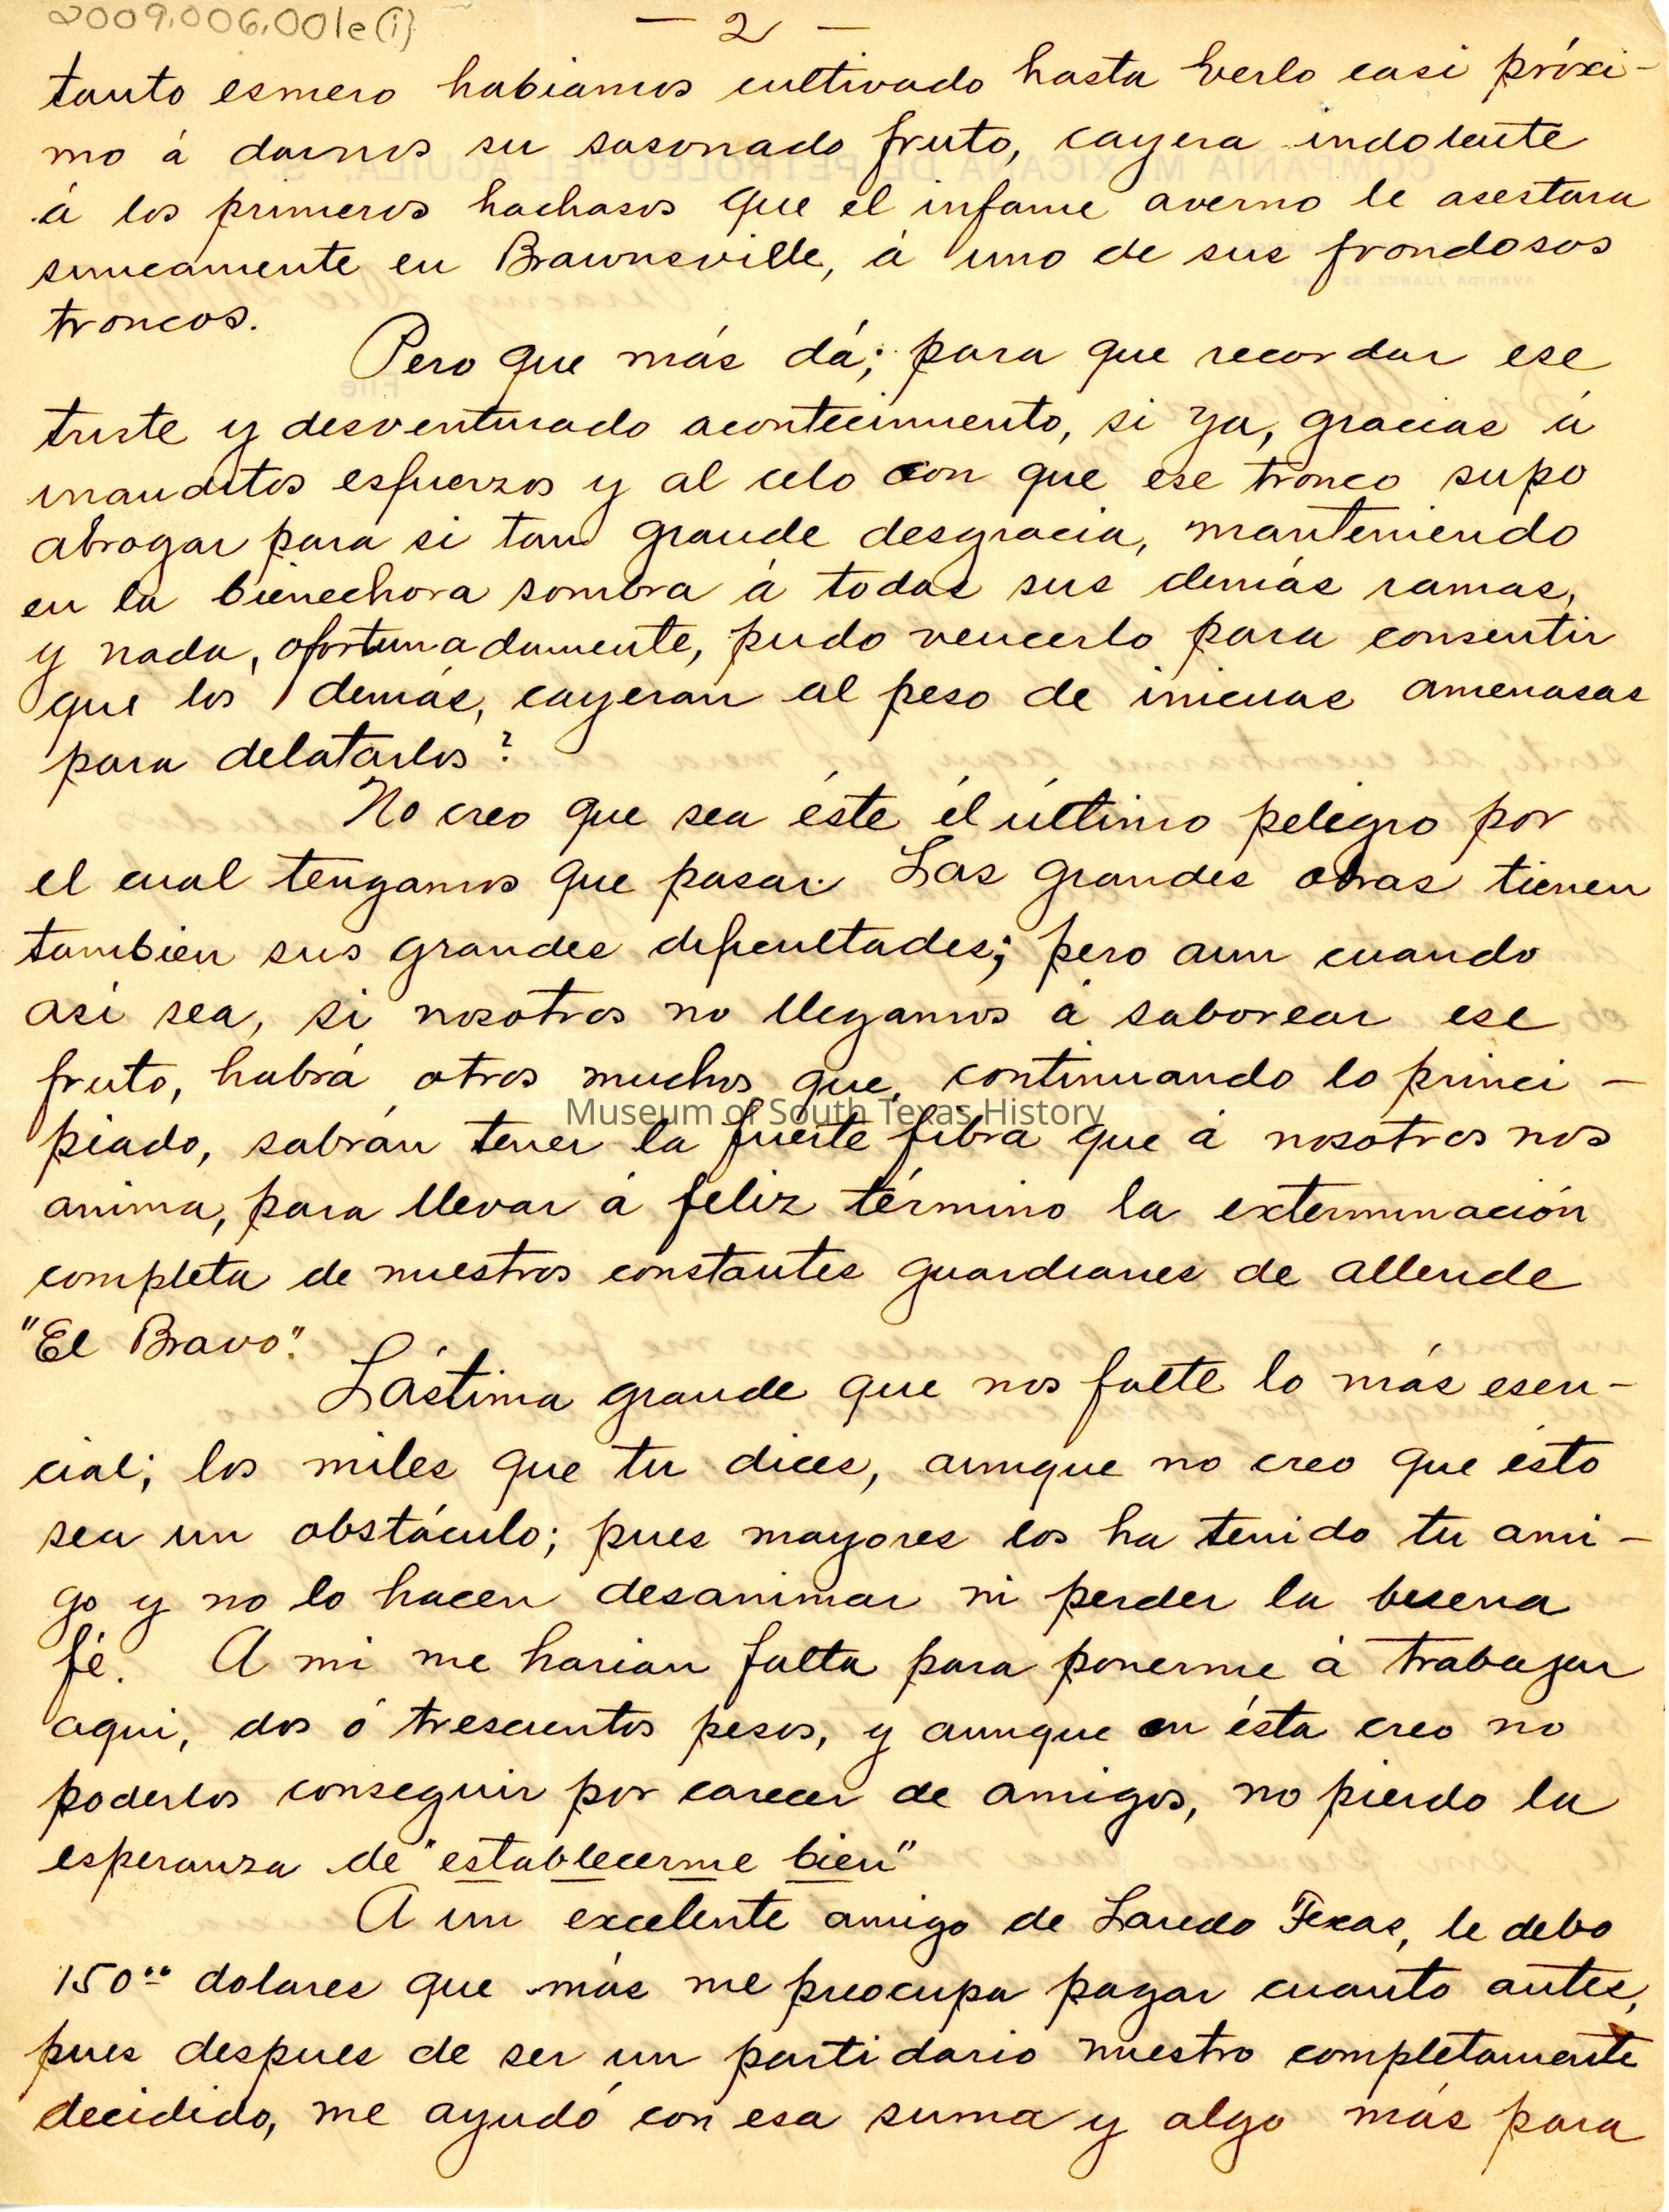 2009.006.001e(i)
— 2 —
tanto esmero habiamos cultivado hasta verlo casi próxi-
mo á darnos su sasonado fruto, cayera indolente
á los primeros hachasos que el infame averno le asestara
simicamente en Brawnsville, á uno de sus frondosos
troncos.
Pero que más dá; para que recordar ese
triste y desventurado acontecimiento, si ya, gracias á
inauditos esfuerzos y al celo con que ese tronco supo
abrogar para si tan grande desgracia, manteniendo
en la bienechora sombra á todas sus demás ramas,
y nada, afortunadamente, pudo vencerlo para consentir
que los demás, cayeran al peso de inicuas amenasas
para delatarlos?
No creo que sea éste él último peligro por
el cual tengamos que pasar. Las grandes obras tienen
tambien sus grandes dificultades; pero aun cuando
asi sea, si nosotros no llegamos á saborear ese
fruto, habrá otros muchos que, continuando lo princi-
piado, sabrán tener la fuerte fibra que á nosotros nos
anima, para llevar á feliz término la exterminación
completa de nuestros constantes guardianes de allende
"El Bravo".
Lástima grande que nos falte lo más esen-
cial; los miles que tu dices, aunque no creo que ésto
sea un obstáculo; pues mayores los ha tenido tu ami-
go y no lo hacen desanimar ni perder la buena
fé. A mi me harian falta para ponerme á trabajar
aqui, dos ó trescientos pesos, y aunque en ésta creo no
poderlos conseguir por carecer de amigos, no pierdo la
esperanza de "establecerme bien"
A un excelente amigo de Laredo Texas, le debo
150.00 dolares que más me preocupa pagar cuanto antes,
pues despues de ser un partidario nuestro completamente
decidido, me ayudó con esa suma y algo más para
Museum of South Texas History